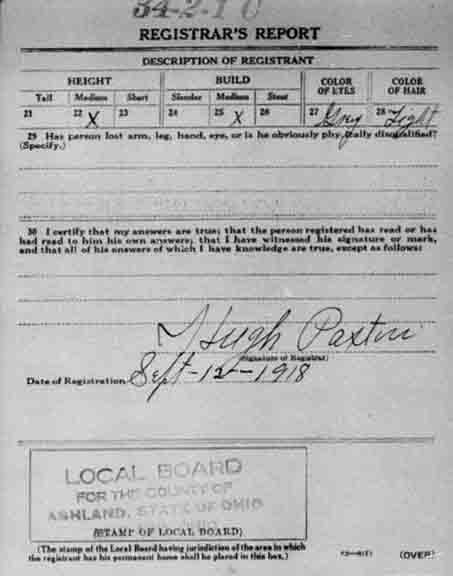 34-2-1 0
REGISTRAR'S REPORT
DESCRIPTION OF REGISTRANT
HEIGHT BUILD COLOR OF EYES COLOR OF HAIR
Tall Medium Short Slender Medium Stout
21 22 X 23 24 25 X 26 27 Grey 28 Light
29 Has person lost arm, leg, hand, eye, or is he obviously physically disqualified?
(Specify.)
30 I certify that my answers are true; that the person registered has read or has
had read to him his own answers; that I have witnessed his signature or mark,
and that all of his answers of which I have knowledge are true, except as follows:
Hugh Paxton
(Signature of Registrar)
Date of Registration Sept-12-1918
LOCAL BOARD
FOR THE COUNTY OF
ASHLAND, STATE OF OHIO
(STAMP OF LOCAL BOARD)
(The stamp of the Local Board having jurisdiction of the area in which
the registrant has his permanent home shall be placed in this box.)
(OVER)